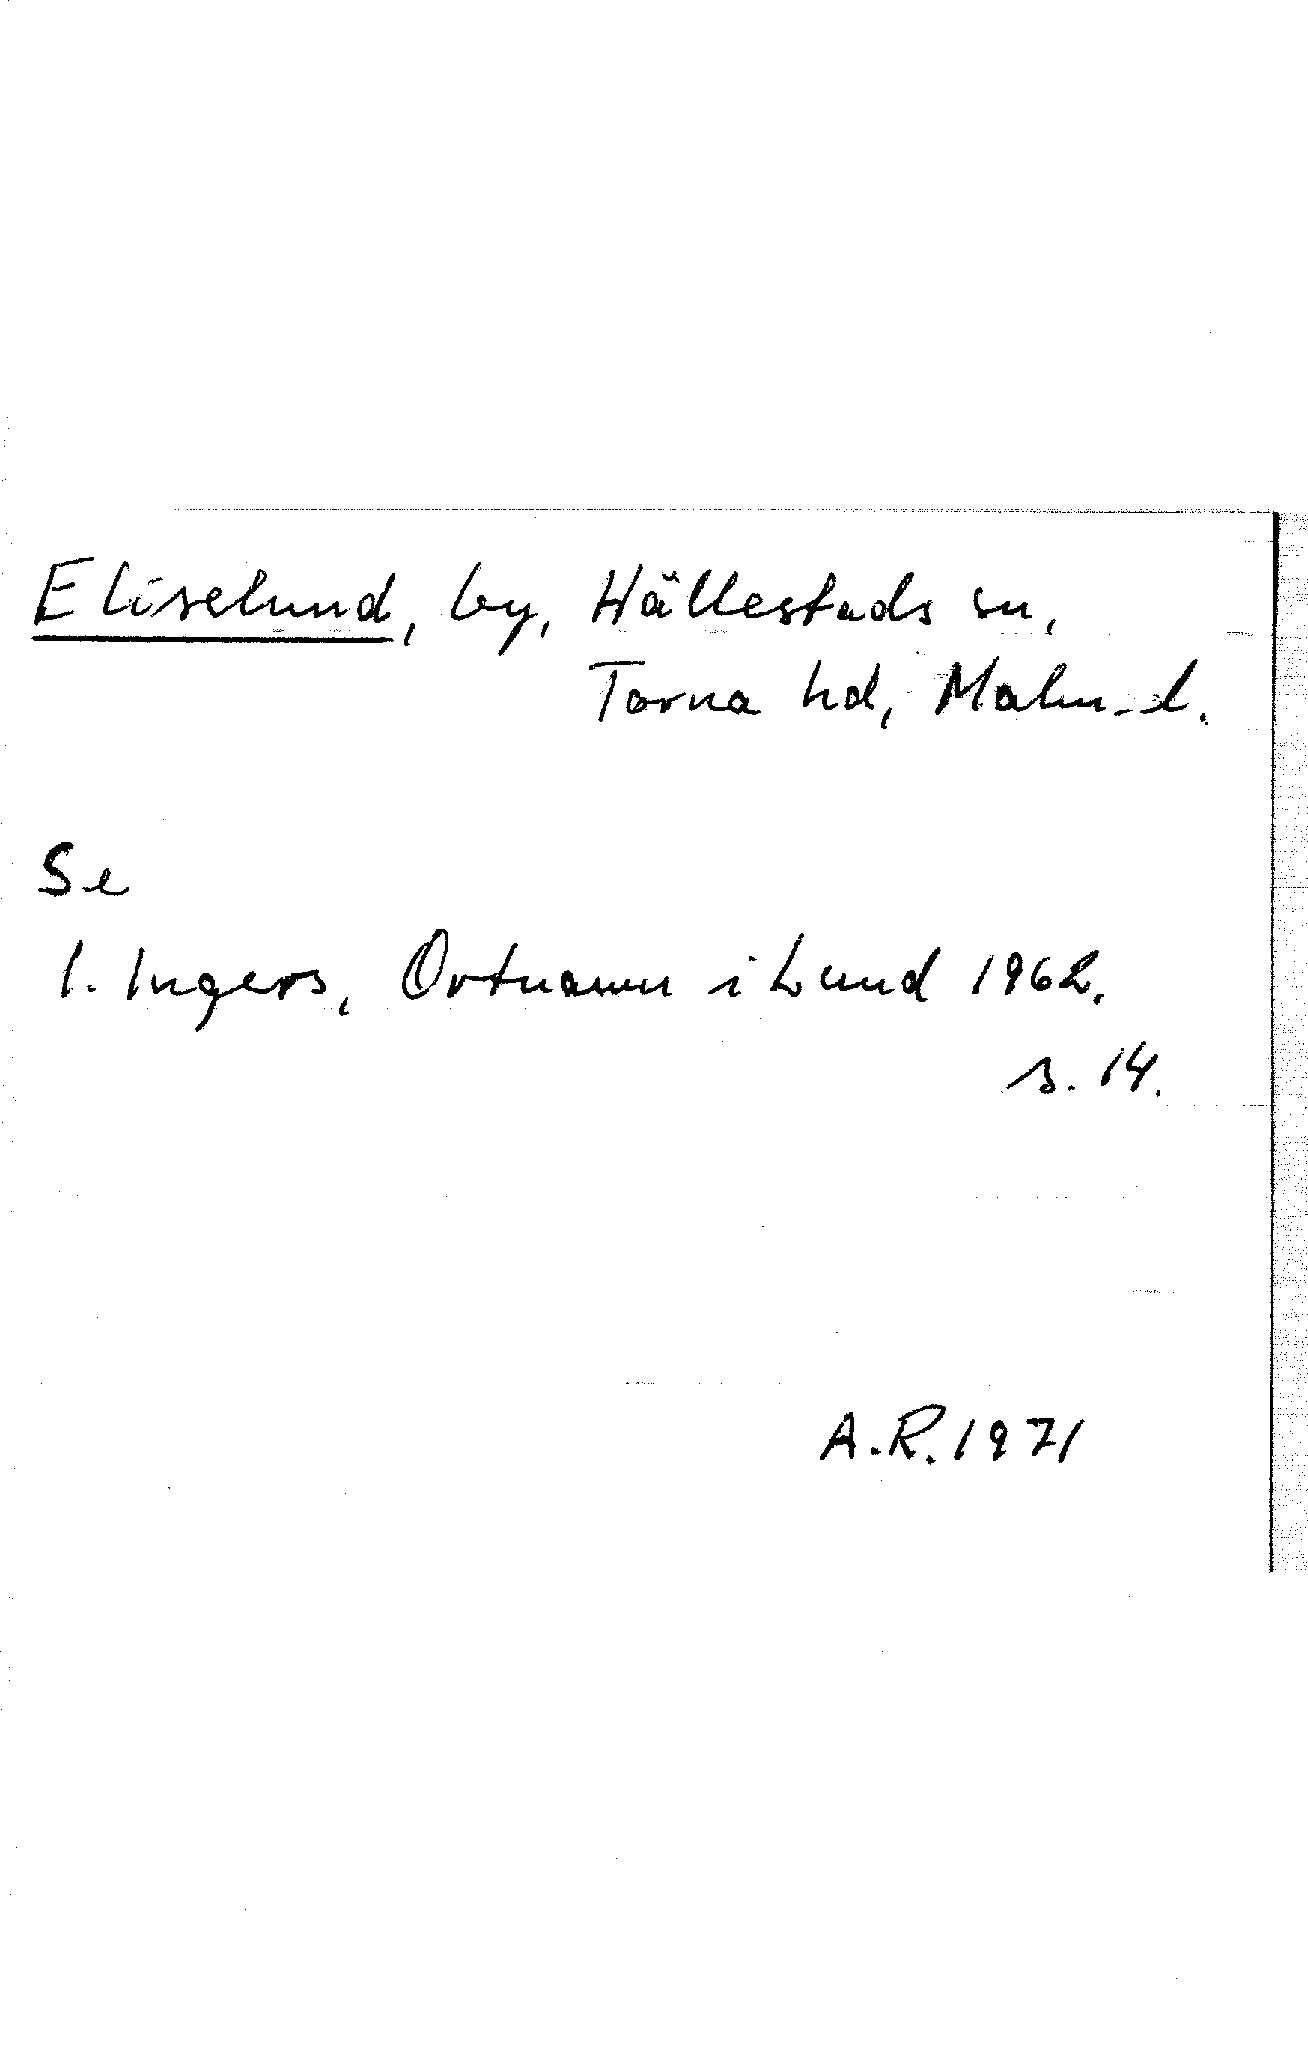 Eliselund, by, Hällestads sn,
Torna hd, Malm. l.
Se
I. Ingers, Ortnamn i Lund 1962.
s. 14.
A.R. 1971